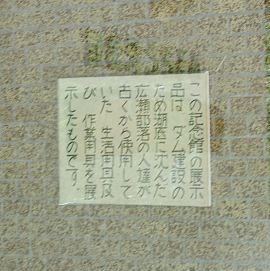 この記念館の展示
品は ダム建設の
ため湖底に沈んだ
広瀬部落の人達が
古くから使用して
いた 生活用具及
び 作業用具を展
示したものです。